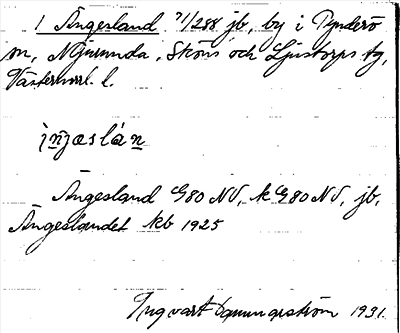 1 Ängesland 71/288 jb, by i Tynderö
sn, Njurunda, Sköns och Ljustorps tg,
Västernorrl. l.
ìn̲jæslán̲
Ängesland G80 NV, k G80 NV, jb,
Ängeslandet kb 1925
Ingvart 1931.